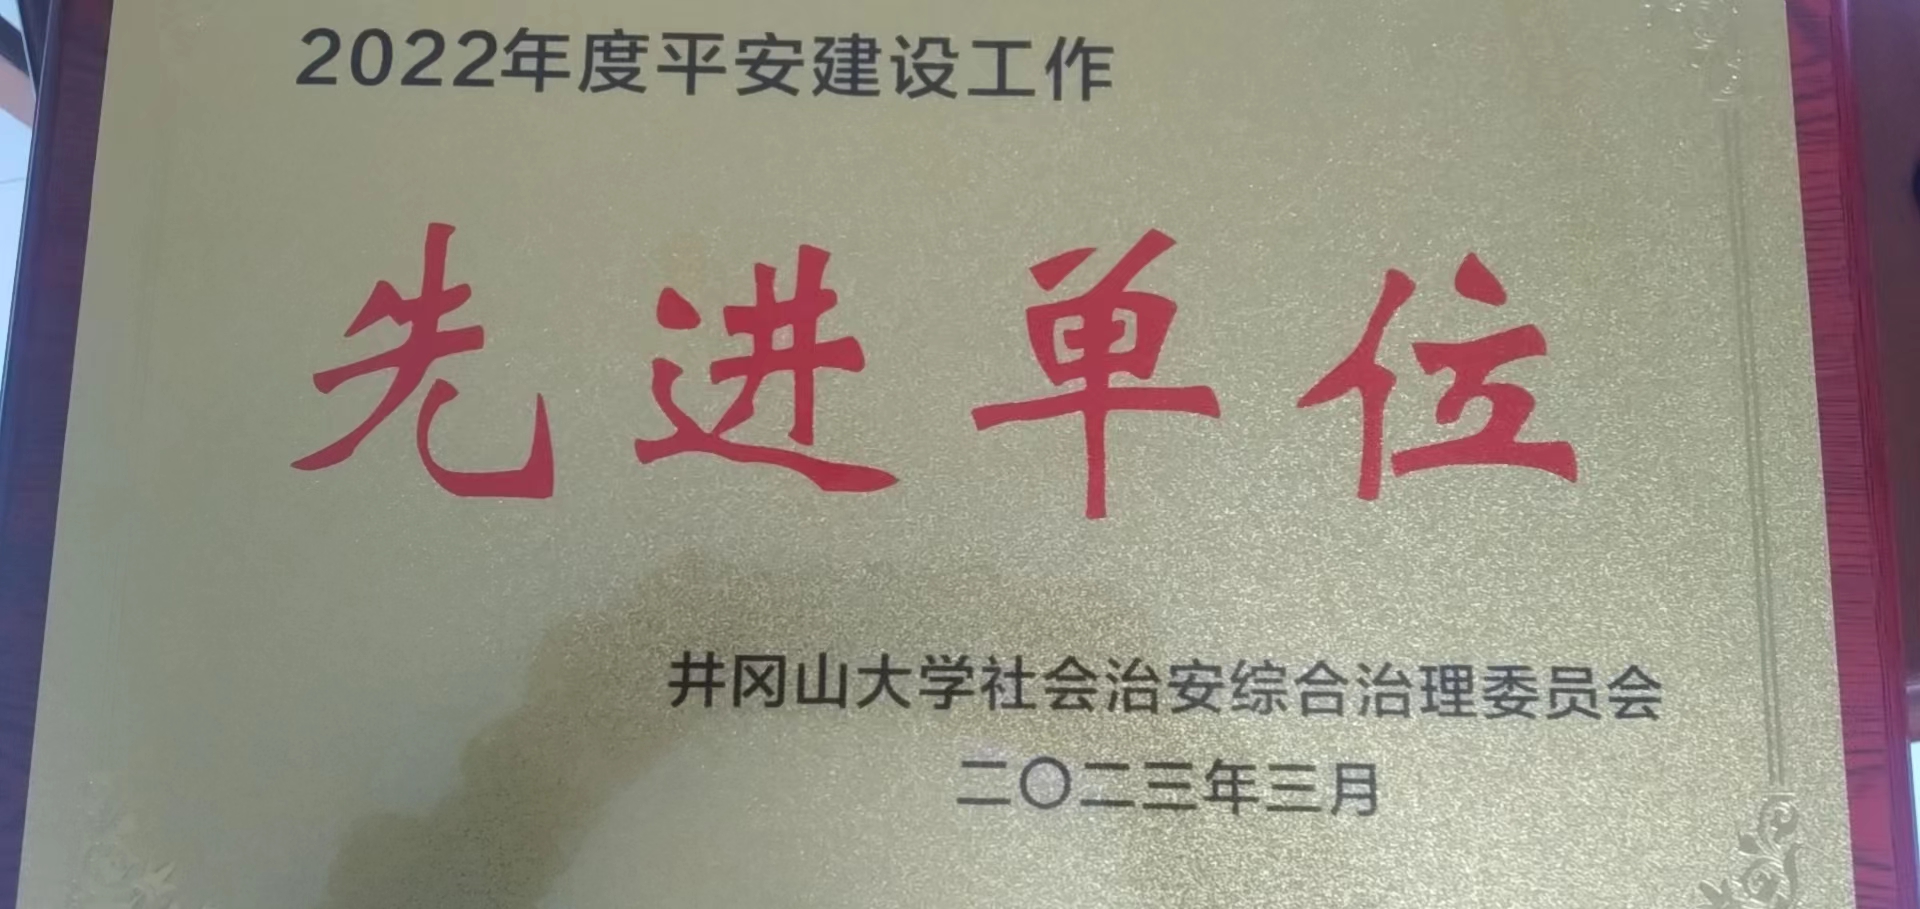 2022年度平安建设工作
先进单位
井冈山大学社会治安综合治理委员会
二〇二三年三月